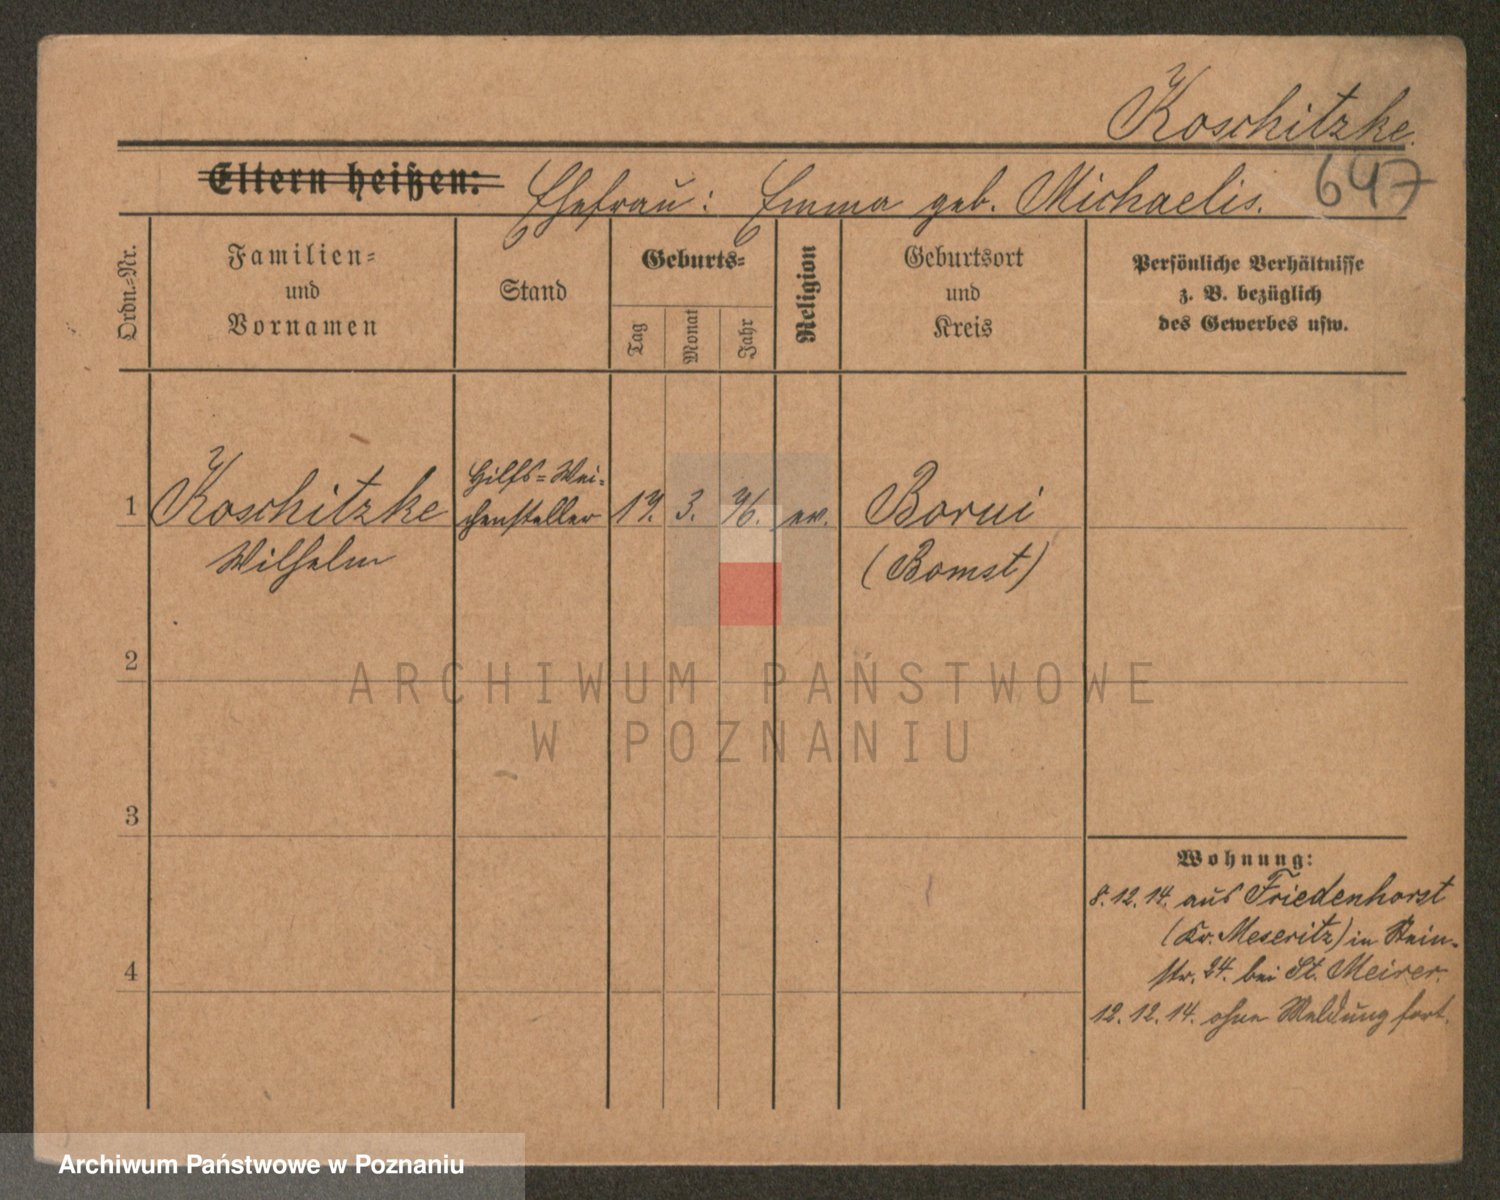 Koschitzke.
647
Eltern heißen: Ehefrau: Emma geb. Michaelis.
Ordn.-Nr.
Familien-
und
Vornamen
Stand
Geburts-
Tag
Monat
Jahr
Religion
Geburtsort
und
Kreis
Persönliche Verhältnisse
z. B. bezüglich
des Gewerbes usw.
1
Koschitzke
Wilhelm
Hilfs-Wei-
chensteller
3.
ev.
Borui
(Bomst)
2
3
4
Wohnung:
8.12.14. aus Friedenhorst
(Kr. Meseritz) in Stein-
str. 24. bei St.
12.12.14. ohne Meldung fort.
ARCHIWUM PAŃSTWOWE
W POZNANIU
Archiwum Państwowe w Poznaniu